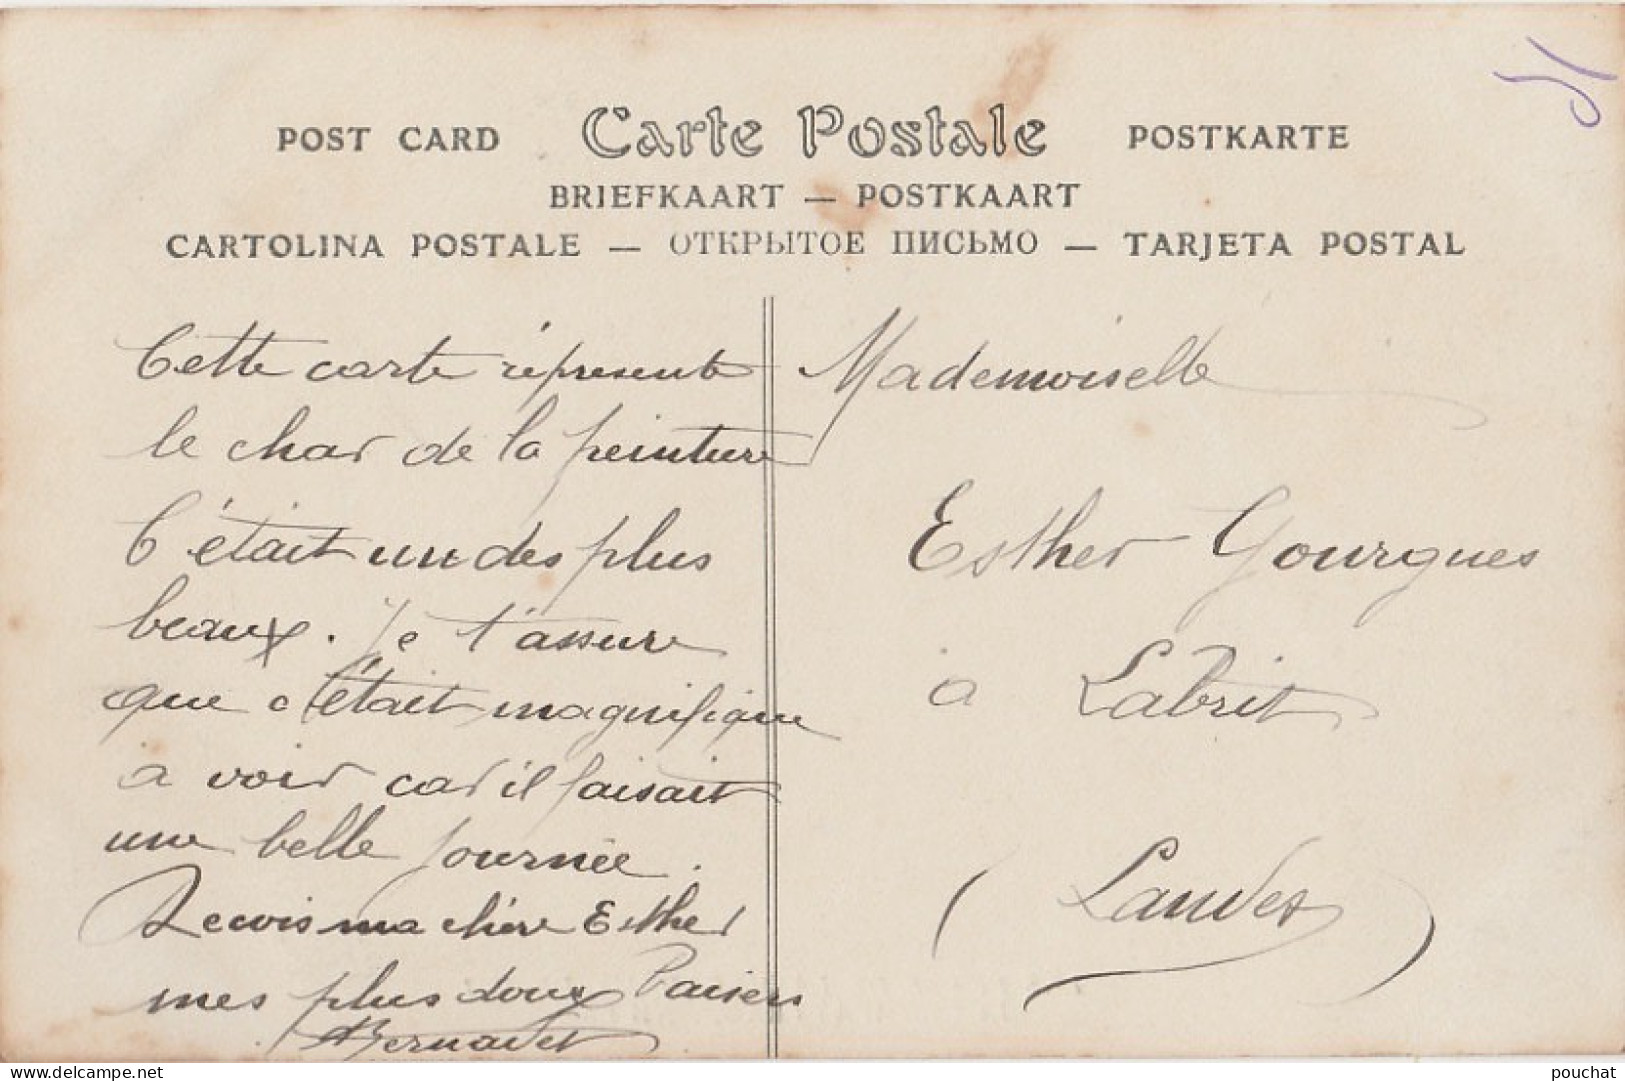 POST CARD Carte Postale POSTKARTE
BRIEFKAART — POSTKAART
CARTOLINA POSTALE — ОТКРЫТОЕ ПИСЬМО — TARJETA POSTAL
Cette carte répresente
le char de la peinture
C'était un des plus
beaux. Je t'assure
que c'était magnifique
à voir car il faisait
une belle journée.
Recois ma chère Esther
mes plus doux Baisers
Bernadet
Mademoiselle
Esther Gourgues
a Labrit
(Landes)
delcampe.net
pouchat